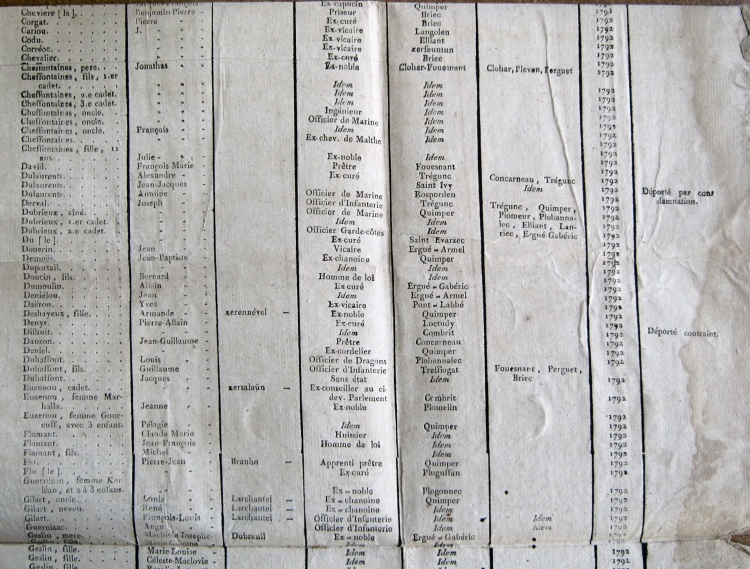 Ex-capucin Quimper
Cheviere [la]. Benjamin-Pierre Priseur Briec 1792
Corgat. Pierre Ex-curé Briec 1792
Cariou. J. Ex-vicaire Langolen 1792
Codu. Ex-vicaire Elliant 1792
Corréoc. Ex-vicaire Kerfeuntun 1792
Chevalier. Ex-curé Briec 1792
Cheffontaines, pere. Jonathas Ex-noble Clohar-Fouesnant Clohar, Pleven, Perguet 1792
Cheffontaines, fils, 1.er
cadet. Idem Idem 1792
Cheffontaines, 2.e cadet. Idem Idem 1792
Cheffontaines, 3.e cadet. Idem Idem 1792
Cheffontaines, oncle. Ingénieur Idem 1792
Cheffontaines, oncle. Officier de Marine Idem 1792
Cheffontaines, oncle. François Idem Idem 1792
Cheffontaines. Ex-chev. de Malthe Idem 1792
Cheffontaines, fille, 11
ans Julie Ex-noble Idem 1792
David. François-Marie Prêtre Fouesnant 1792
Dulaurents. Alexandre Ex-curé Trégunc Concarneau, Trégunc 1792
Dulaurents. Jean-Jacques Saint Ivy Idem 1792
Dulaurents. Antoine Officier de Marine Rosporden 1792 Déporté par con
Derval. Joseph Officier d'Infanterie Trégunc Trégunc, Quimper, 1792 damnation.
Dubrieux, aîné. Officier de Marine Quimper Plomeur, Plobanna- 1792
Dubrieux, 1.er cadet. Idem Idem lec, Elliant, Lan- 1792
Dubrieux, 2.e cadet. Officier Garde-côtes Idem riec, Ergué-Gabéric 1792
Du [le]. Ex-curé Saint Evarzec 1792
Douerin. Jean Vicaire Ergué-Armel 1792
Jean-Baptiste Ex-chanoine Quimper 1792
Duportail. Idem Idem 1792
Doucin, fils. Bernard Homme de loi Idem 1792
Dumoulin. Allain Ex-curé Ergué-Gabéric 1792
Deniélou. Jean Idem Ergué-Armel 1792
Yves Ex-vicaire Pont-Labbé 1792
Deshayeux, fille. Armande Kerennével Ex-noble Quimper 1792
Denys. Pierre-Allain Ex-curé Loctudy 1792
Dilhuit. Idem Combrit 1792 Déporté contraint.
Dauzon. Jean-Guillaume Prêtre Concarneau 1792
Deniel. Ex-cordelier Quimper 1792
Duhaffont. Louis Officier de Dragons Plobannalec 1792
Duhaffont, fils. Guillaume Officier d'Infanterie Treffiogat Fouesnant, Perguet, 1792
Duhaffont. Jacques Sans état Idem Briec 1792
Euzenou, cadet. Kersalaün Ex-conseiller au ci-
Euzenou, femme Mar- dev. Parlement Combrit 1792
halla. Jeanne Ex-noble Plomelin 1792
Euzenou, femme Gour-
cuff, avec 3 enfans. Pélagie Idem Quimper 1792
Flamant. Claude Marie Huissier Idem 1792
Flamant. Jean-François Homme de loi Idem 1792
Flamant, fils. Michel Idem 1792
Pierre-Jean Brauho Apprenti prêtre Quimper 1792
Flo [le]. Ex-curé Ploguffan 1792
Guernizac, femme Ker
léan, et 2 à 3 enfans. Ex-noble Plogonnec 1792
Gilart, oncle. Louis Larchantel Ex-chanoine Quimper 1792
Gilart, neveu. René Larchantel Ex-chanoine Idem 1792
Gilart. François-Louis Larchantel Officier d'Infanterie Idem Idem 1792
Guernizac. Ange Officier d'Infanterie Idem Idem 1792
Geslin, mere. Dubreuil Ex-noble Ergué-Gabéric 1792
Geslin, fille. Marie-Louise Idem Idem 1792
Geslin, fille. Céleste-Maclovie Idem Idem 1792
Geslin, fille. Idem Idem 1792